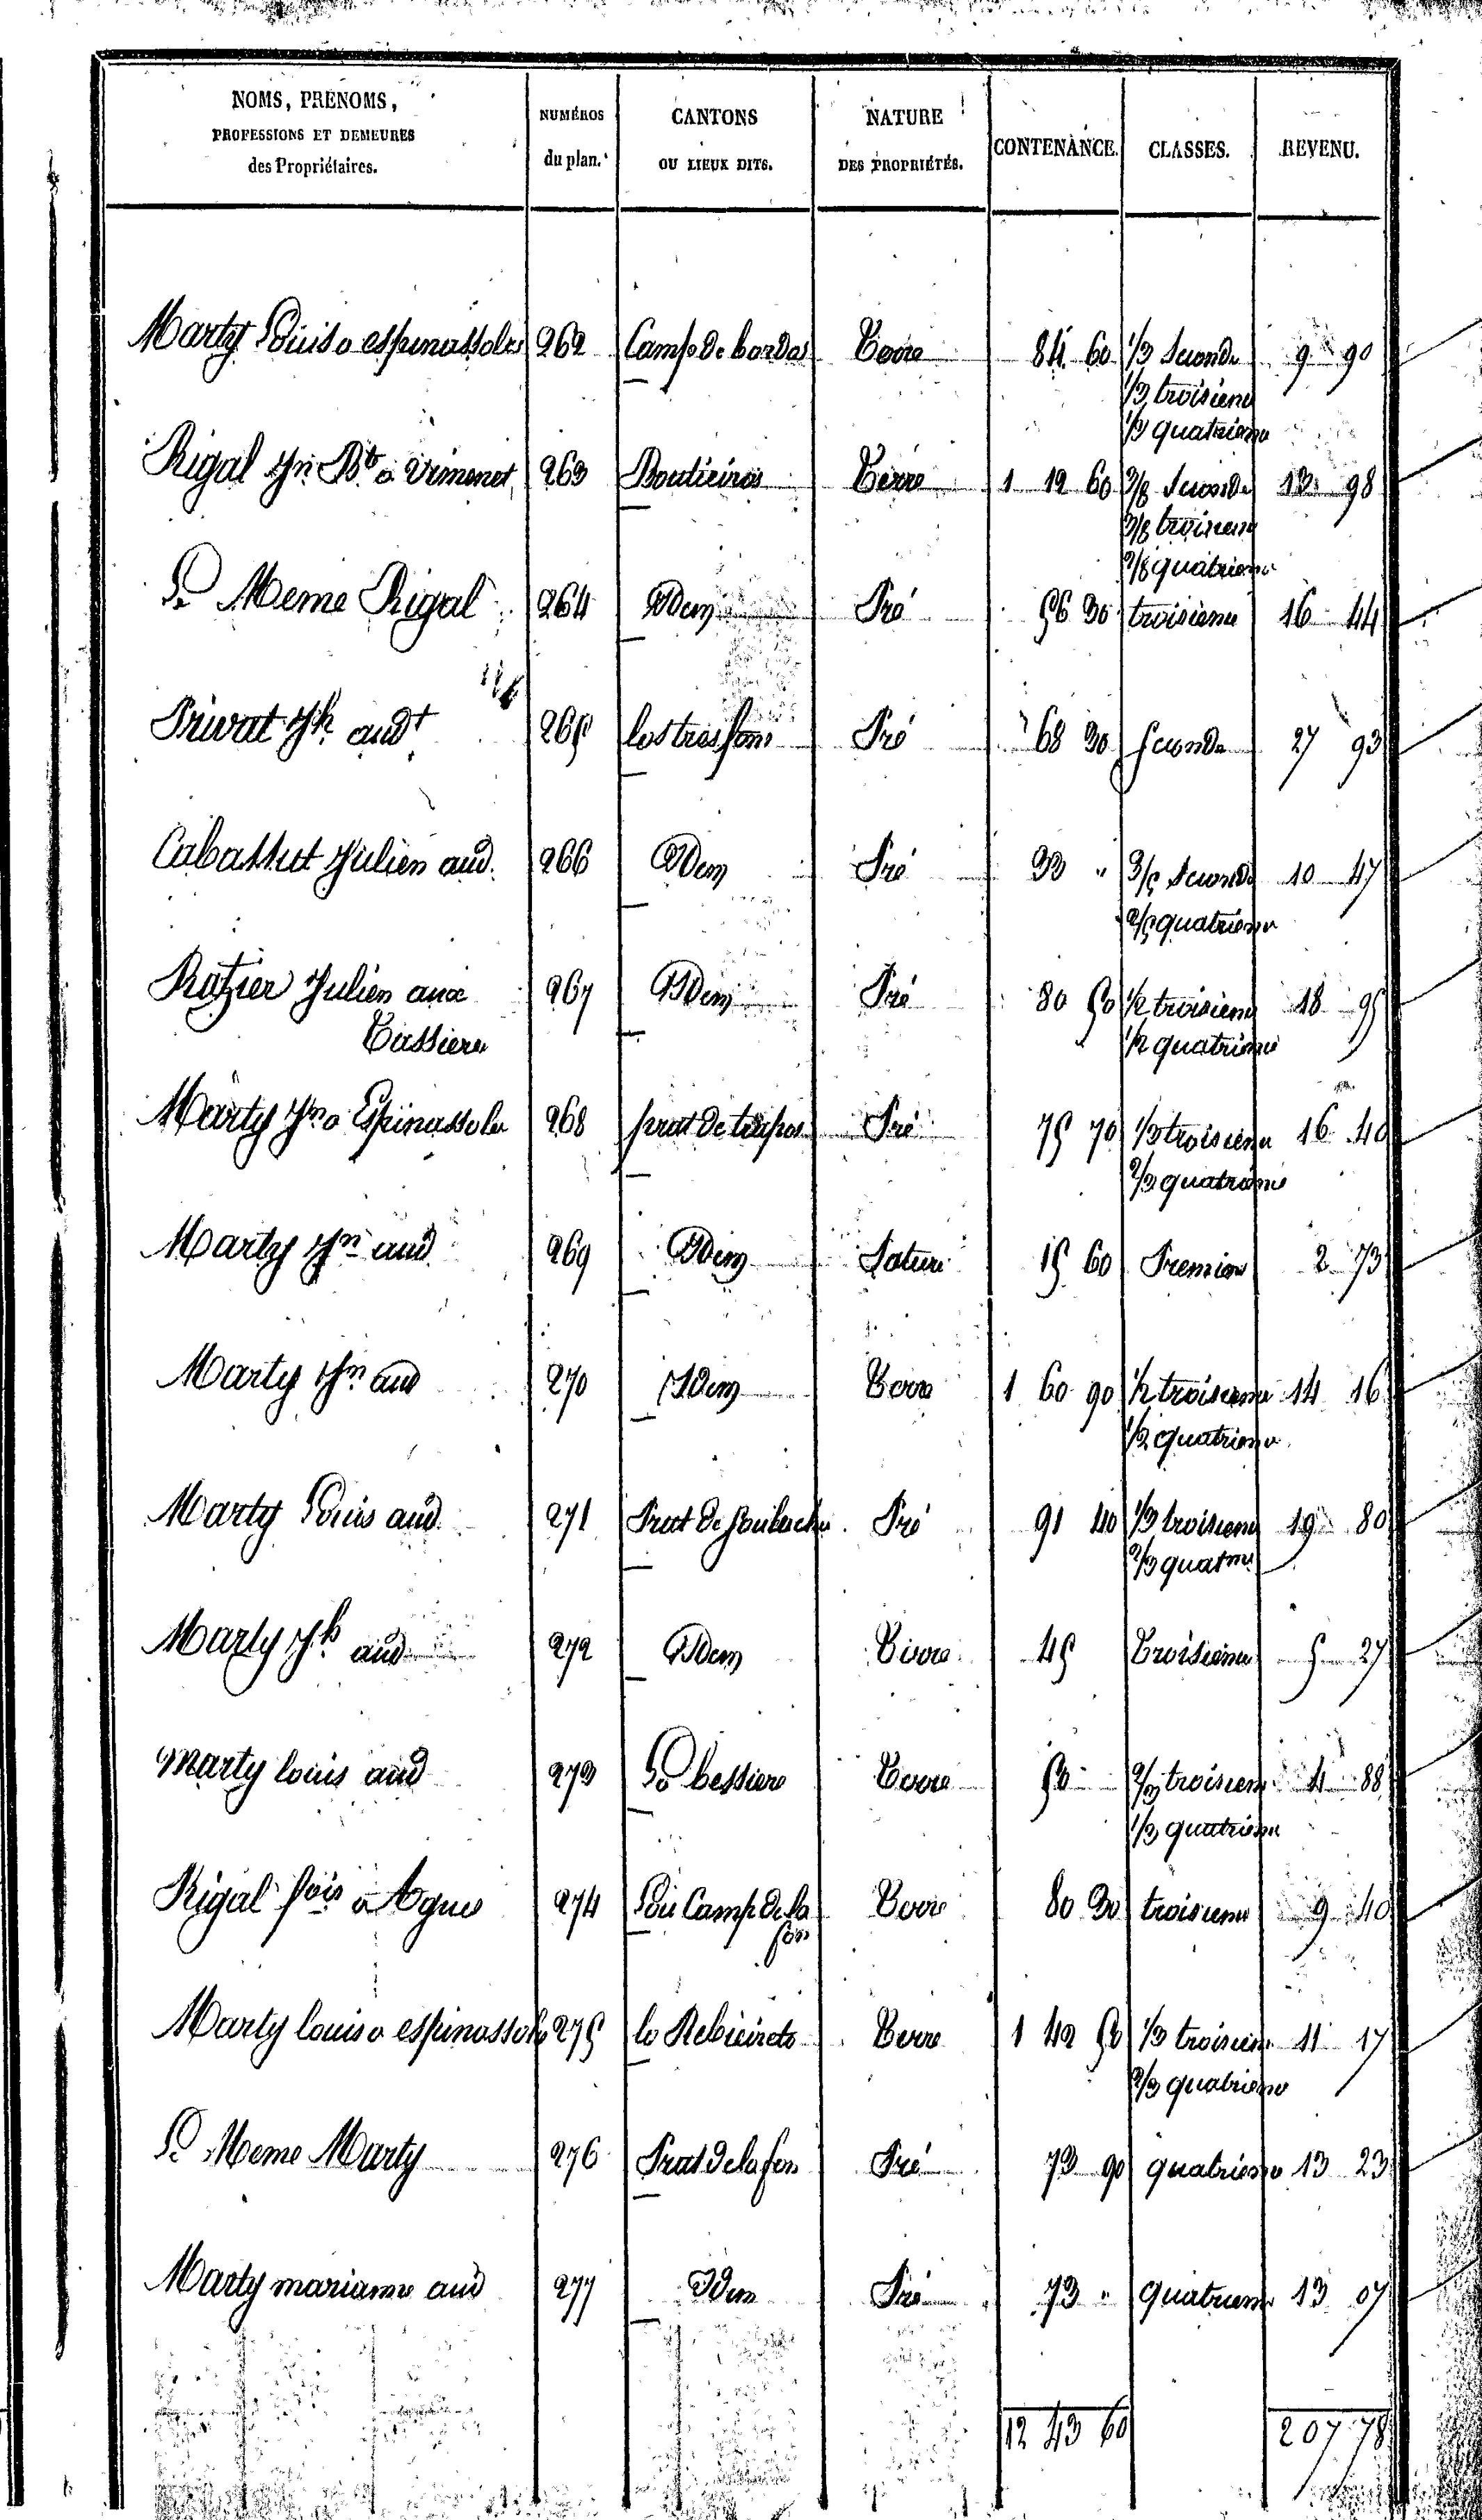 NOMS, PRÉNOMS, PROFESSIONS ET DEMEURES des Propriétaires. NUMÉROS du plan. CANTONS OU LIEUX DITS. NATURE DES PROPRIÉTÉS. CONTENANCE. CLASSES. REVENU.
Marty Louis a espinassoles 262 Camp de bordes Terre 84 60 1/3 Seconde 9 90
1/3 troisieme
1/3 quatrieme
Rigal Jn Bte a Vimenet 263 Boutieiros Terre 1 19 60 3/8 Seconde 13 98
3/8 troisieme
2/8 quatrieme
Le Meme Rigal 264 Idem Pré 56 30 troisieme 16 44
Privat Jh audt 265 los tres fons Pré 68 30 seconde 27 93
Cabassut Julien aud. 266 Idem Pré 33 " 3/5 Seconde 10 47
2/5 quatrieme
Rozier Julien aux 267 Idem Pré 80 50 1/2 troisieme 18 95
Tassieres 1/2 quatrieme
Marty Jn a Espinassoles 268 prat de taupos Pré 75 70 1/3 troisieme 16 40
2/3 quatrieme
Marty Jn aud. 269 Idem Pature 15 60 Premiere 2 73
Marty Jn aud 270 Idem Terre 1 60 90 1/2 troisieme 14 16
1/2 quatrieme
Marty Louis aud. 271 Prat de Pré 91 40 1/3 troisieme 19 80
2/3 quatme
Marty Jh aud 272 Idem Terre 45 Troisieme 5 27
Marty louis aud 273 Lo bessiere Terre 50 2/3 troisieme 4 88
1/3 quatrieme
Rigal fois a Agnes 274 Lou Camp de la Terre 80 30 troisieme 9 40
fon
Marty louis a espinassoles 275 lo Rebieireto Terre 1 42 50 1/3 troisieme 11 17
2/3 quatrieme
Le Meme Marty 276 Prat de la fon Pré 73 90 quatrieme 13 23
Marty marianne aud 277 Idem Pré 73 " quatrieme 13 07
12 43 60 207 78